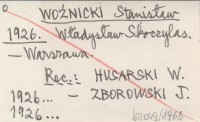 WOŹNICKI Stanisław
1926. Władysław Skoczylas.
— Warszawa.
Rec.: HUSARSKI W.
1926... — ZBOROWSKI J.
1926...